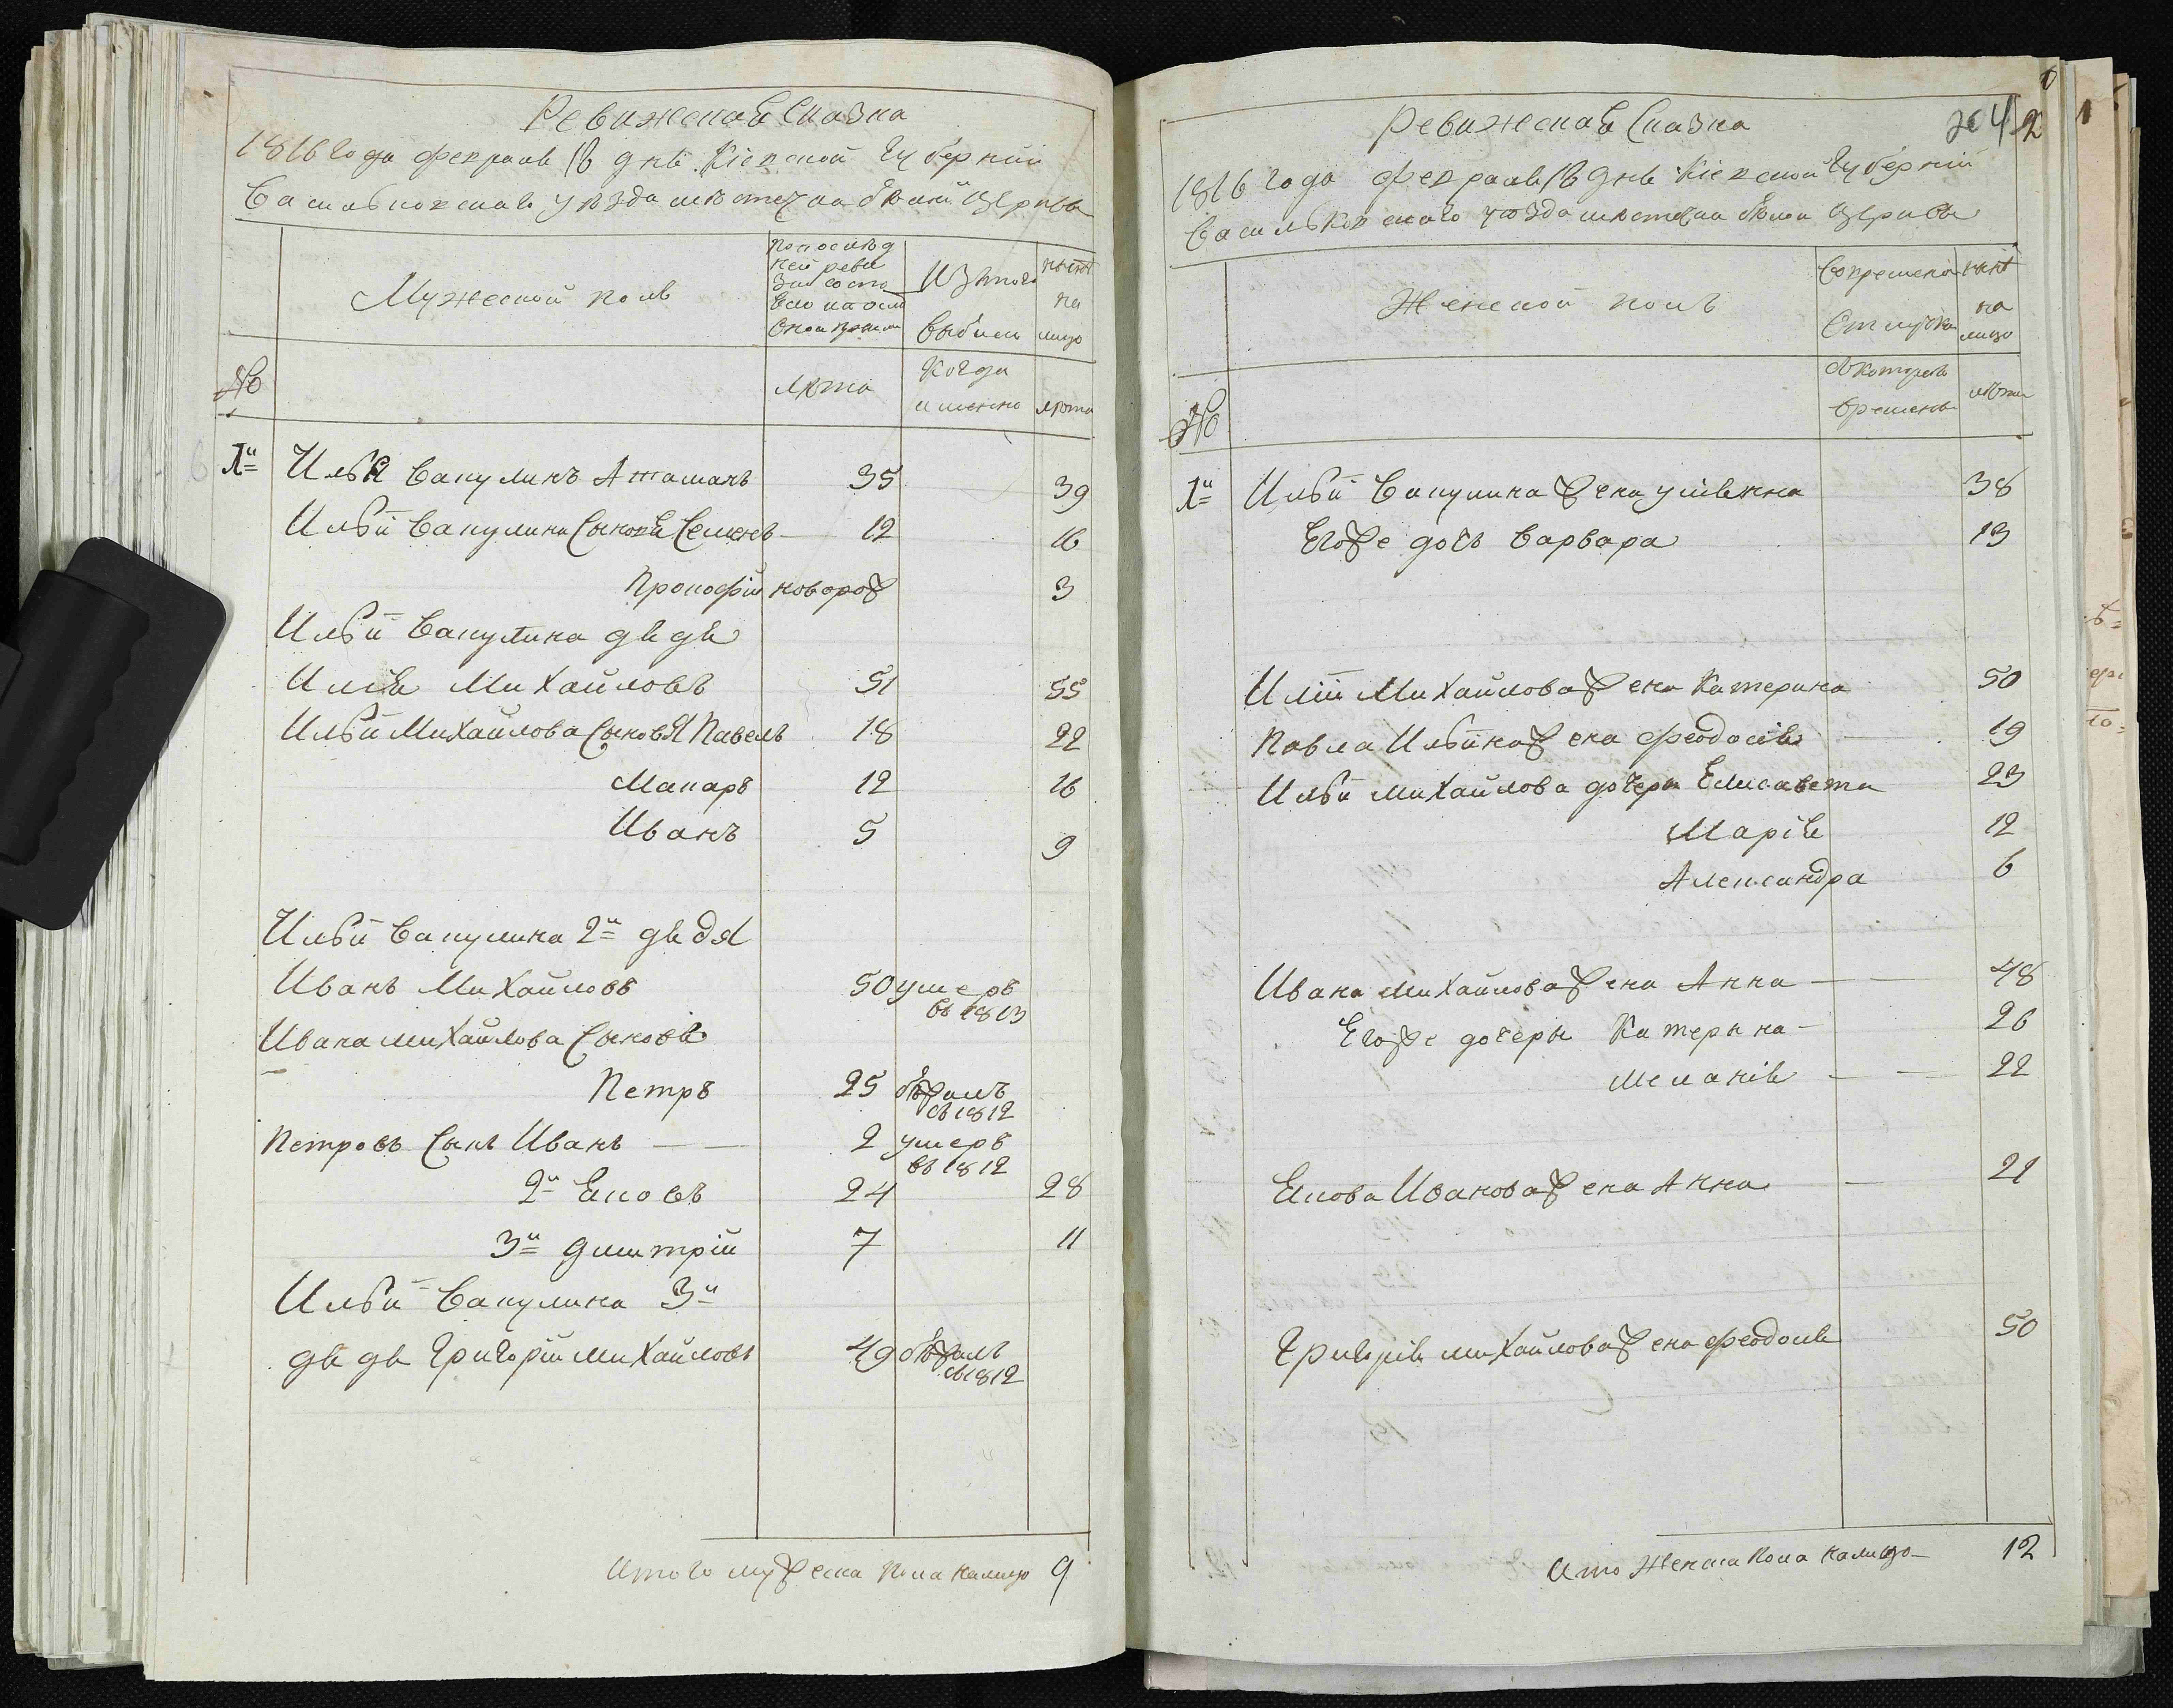 Ревижская Сказка
1816 года февраля 18 дня Кіевской Губерніи
Васильковскаго уѣзда мѣстечка бѣлой Церквы
Мужеской полъ
По послѣд
ней реви
зіи состо
яло и послѣ
Изъ того
выбыли
нынѣ
на
лицо
№
лѣта
Когда
именно
лѣта
1й Илья Вакулинъ Атаманъ 35 39
Ильи Вакулина Сыновя Семенъ 12 16
Прокофій новорож 3
Ильи Вакулина дядя
Илія Михайловъ 51 55
Ильи Михайлова Сыновя Павелъ 18 22
Макаръ 12 16
Иванъ 5 9
Ильи Вакулина 2й дядя
Иванъ Михайловъ 50 умеръ
въ 1813
Ивана михайлова Сыновя
Петръ 25 бѣжалъ
въ 1812
Петровъ Сынъ Иванъ 2 умеръ
въ 1812
2й Яковъ 24 28
3й дмитрій 7 11
Ильи Вакулина 3й
дядя Григорій михайловъ 49 бѣжалъ
въ 1812
Итого мужеска пола налицо 9
Ревижская Сказка
204 2
1816 года февраля 18 дня Кіевской Губерніи
Васильковскаго уѣзда мѣстечка бѣлой Церквы
Женской полъ
Во временной
отлучке
нынѣ
на
лицо
№
Съ котораго
времени
лѣта
1й Ильи Вакулина жена уліяна 38
Егоже дочь Варвара 13
Иліи Михайлова жена Катерина 50
Павла Ильина жена феодосія 19
Ильи михайлова дочери Елисавета 23
Марія 12
Александра 6
Ивана михайлова жена Анна 48
Егоже дочеры Катерина 26
меланія 22
Якова Иванова жена Анна 21
Григорія михайлова жена феодосія 50
Ито Женска пола налицо 12